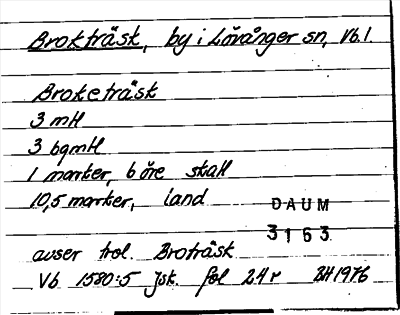 Brokträsk, by i Lövånger sn, Vb.
Broketräsk
3 mtl
3 bgmtl
1 marker, 6 öre skatt
10,5 marker, land
DAUM
3163
avser trol. Broträsk
Vb 1580:5 Jsk. fol 24r BH 1976